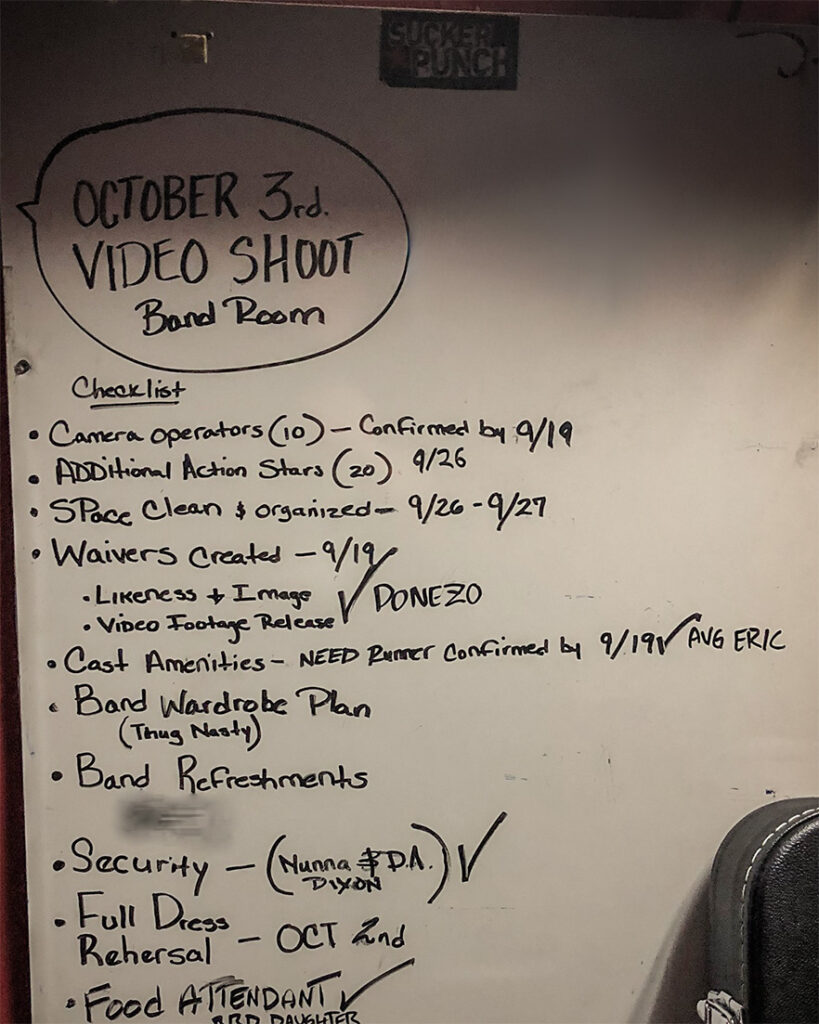 SUCKER
PUNCH
OCTOBER 3rd.
VIDEO SHOOT
Band Room
Checklist
• Camera operators (10) – Confirmed by 9/19
• ADDitional Action Stars (20) 9/26
• SPace Clean & organized – 9/26 - 9/27
• Waivers Created – 9/19 ✓
• Likeness + Image ✓ DONEZO
• Video Footage Release
• Cast Amenities – NEED Runner Confirmed by 9/19 ✓ AVG ERIC
• Band Wardrobe Plan
(Thug Nasty)
• Band Refreshments
• Security – (Nunna & D.A. DIXON) ✓
• Full Dress
Rehersal – OCT 2nd
• Food ATTENDANT ✓
DAUGHTER